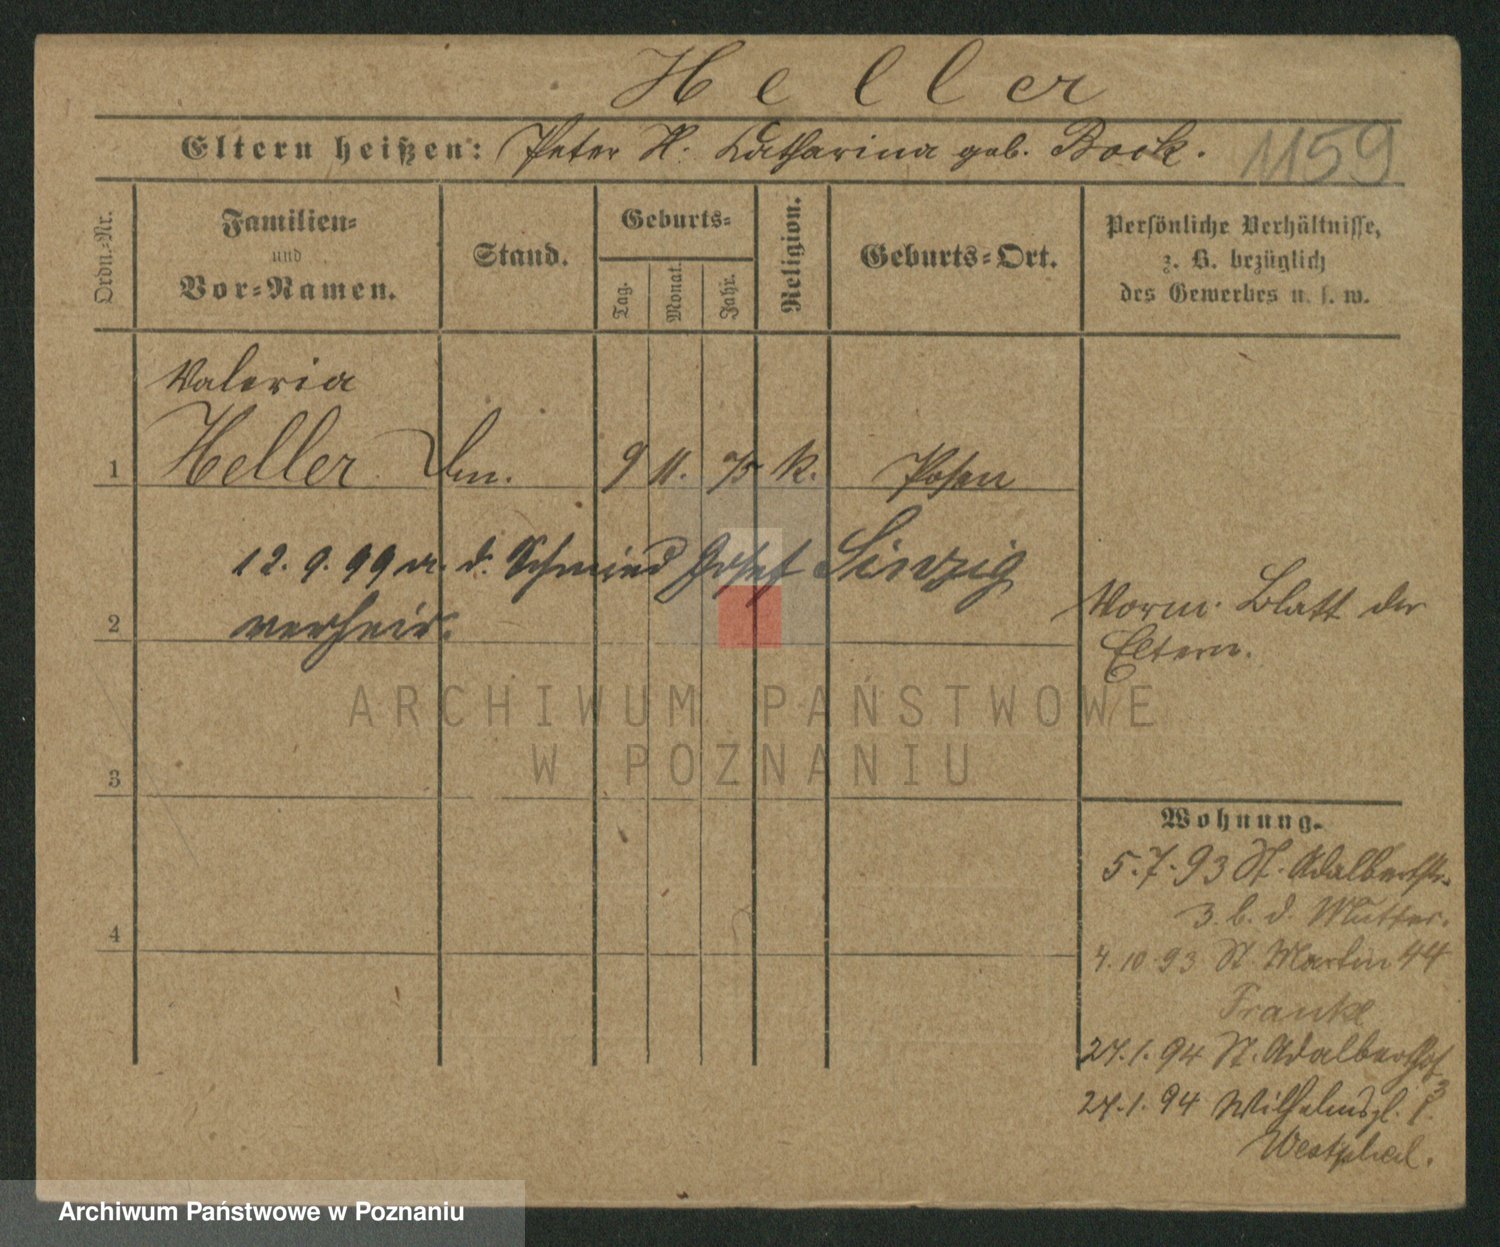 Heller
Eltern heißen: Peter H. Catharina geb. Bock.
1159
Ordn.-Nr.
Familien-
und
Vor-Namen.
Stand.
Geburts-
Tag.
Monat.
Jahr.
Religion.
Geburts-Ort.
Persönliche Verhältnisse,
z. B. bezüglich
des Gewerbes u. s. w.
Valeria
1 Heller 9 11. 75 K. Posen
12. 9. 99 m. d. Schmied Josef Sinzig
2 verheir.
Vorm. Blatt der
Eltern.
3
4
Wohnung.
5.7.93 St. Adalbertstr.
3. b. d. Mutter.
4.10 93 St Martin 44
Franke
27.1.94 St. Adalberthof
3
27.1.94 Wilhelmspl.
Westphal.
ARCHIWUM PAŃSTWOWE
W POZNANIU
Archiwum Państwowe w Poznaniu